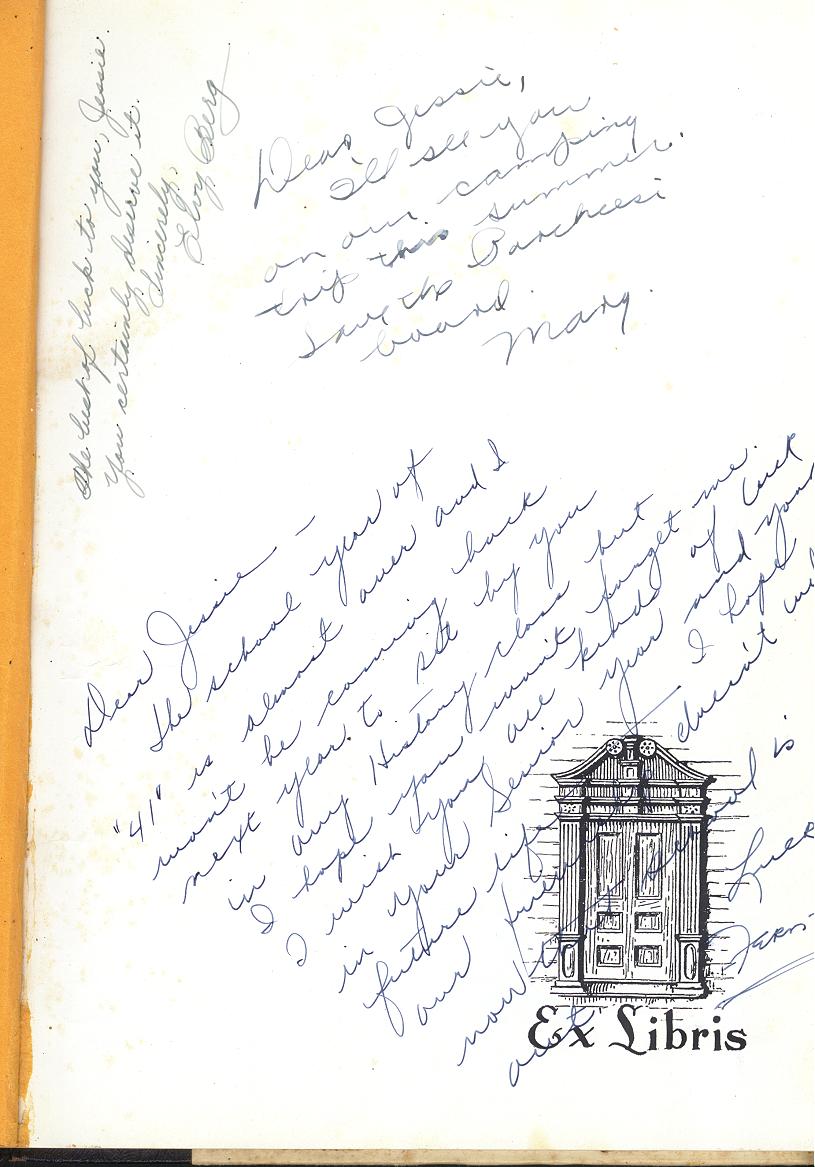 The best of luck to you, Jessie.
You certainly deserve it.
Sincerely,
Elvoy Berg
Dear Jessie,
I'll see you
on our camping
trip this summer.
Save the Parcheesi
board.
Mary.
Dear Jessie –
The school year of
"41" is almost over and I
won't be coming back
next year to sit by you
in any History class but
I hope you won't forget me.
I wish you all kinds of luck
in your Senior year and your
future life. I hope
our doesn't
now that school is
out
Luck
Ex Libris